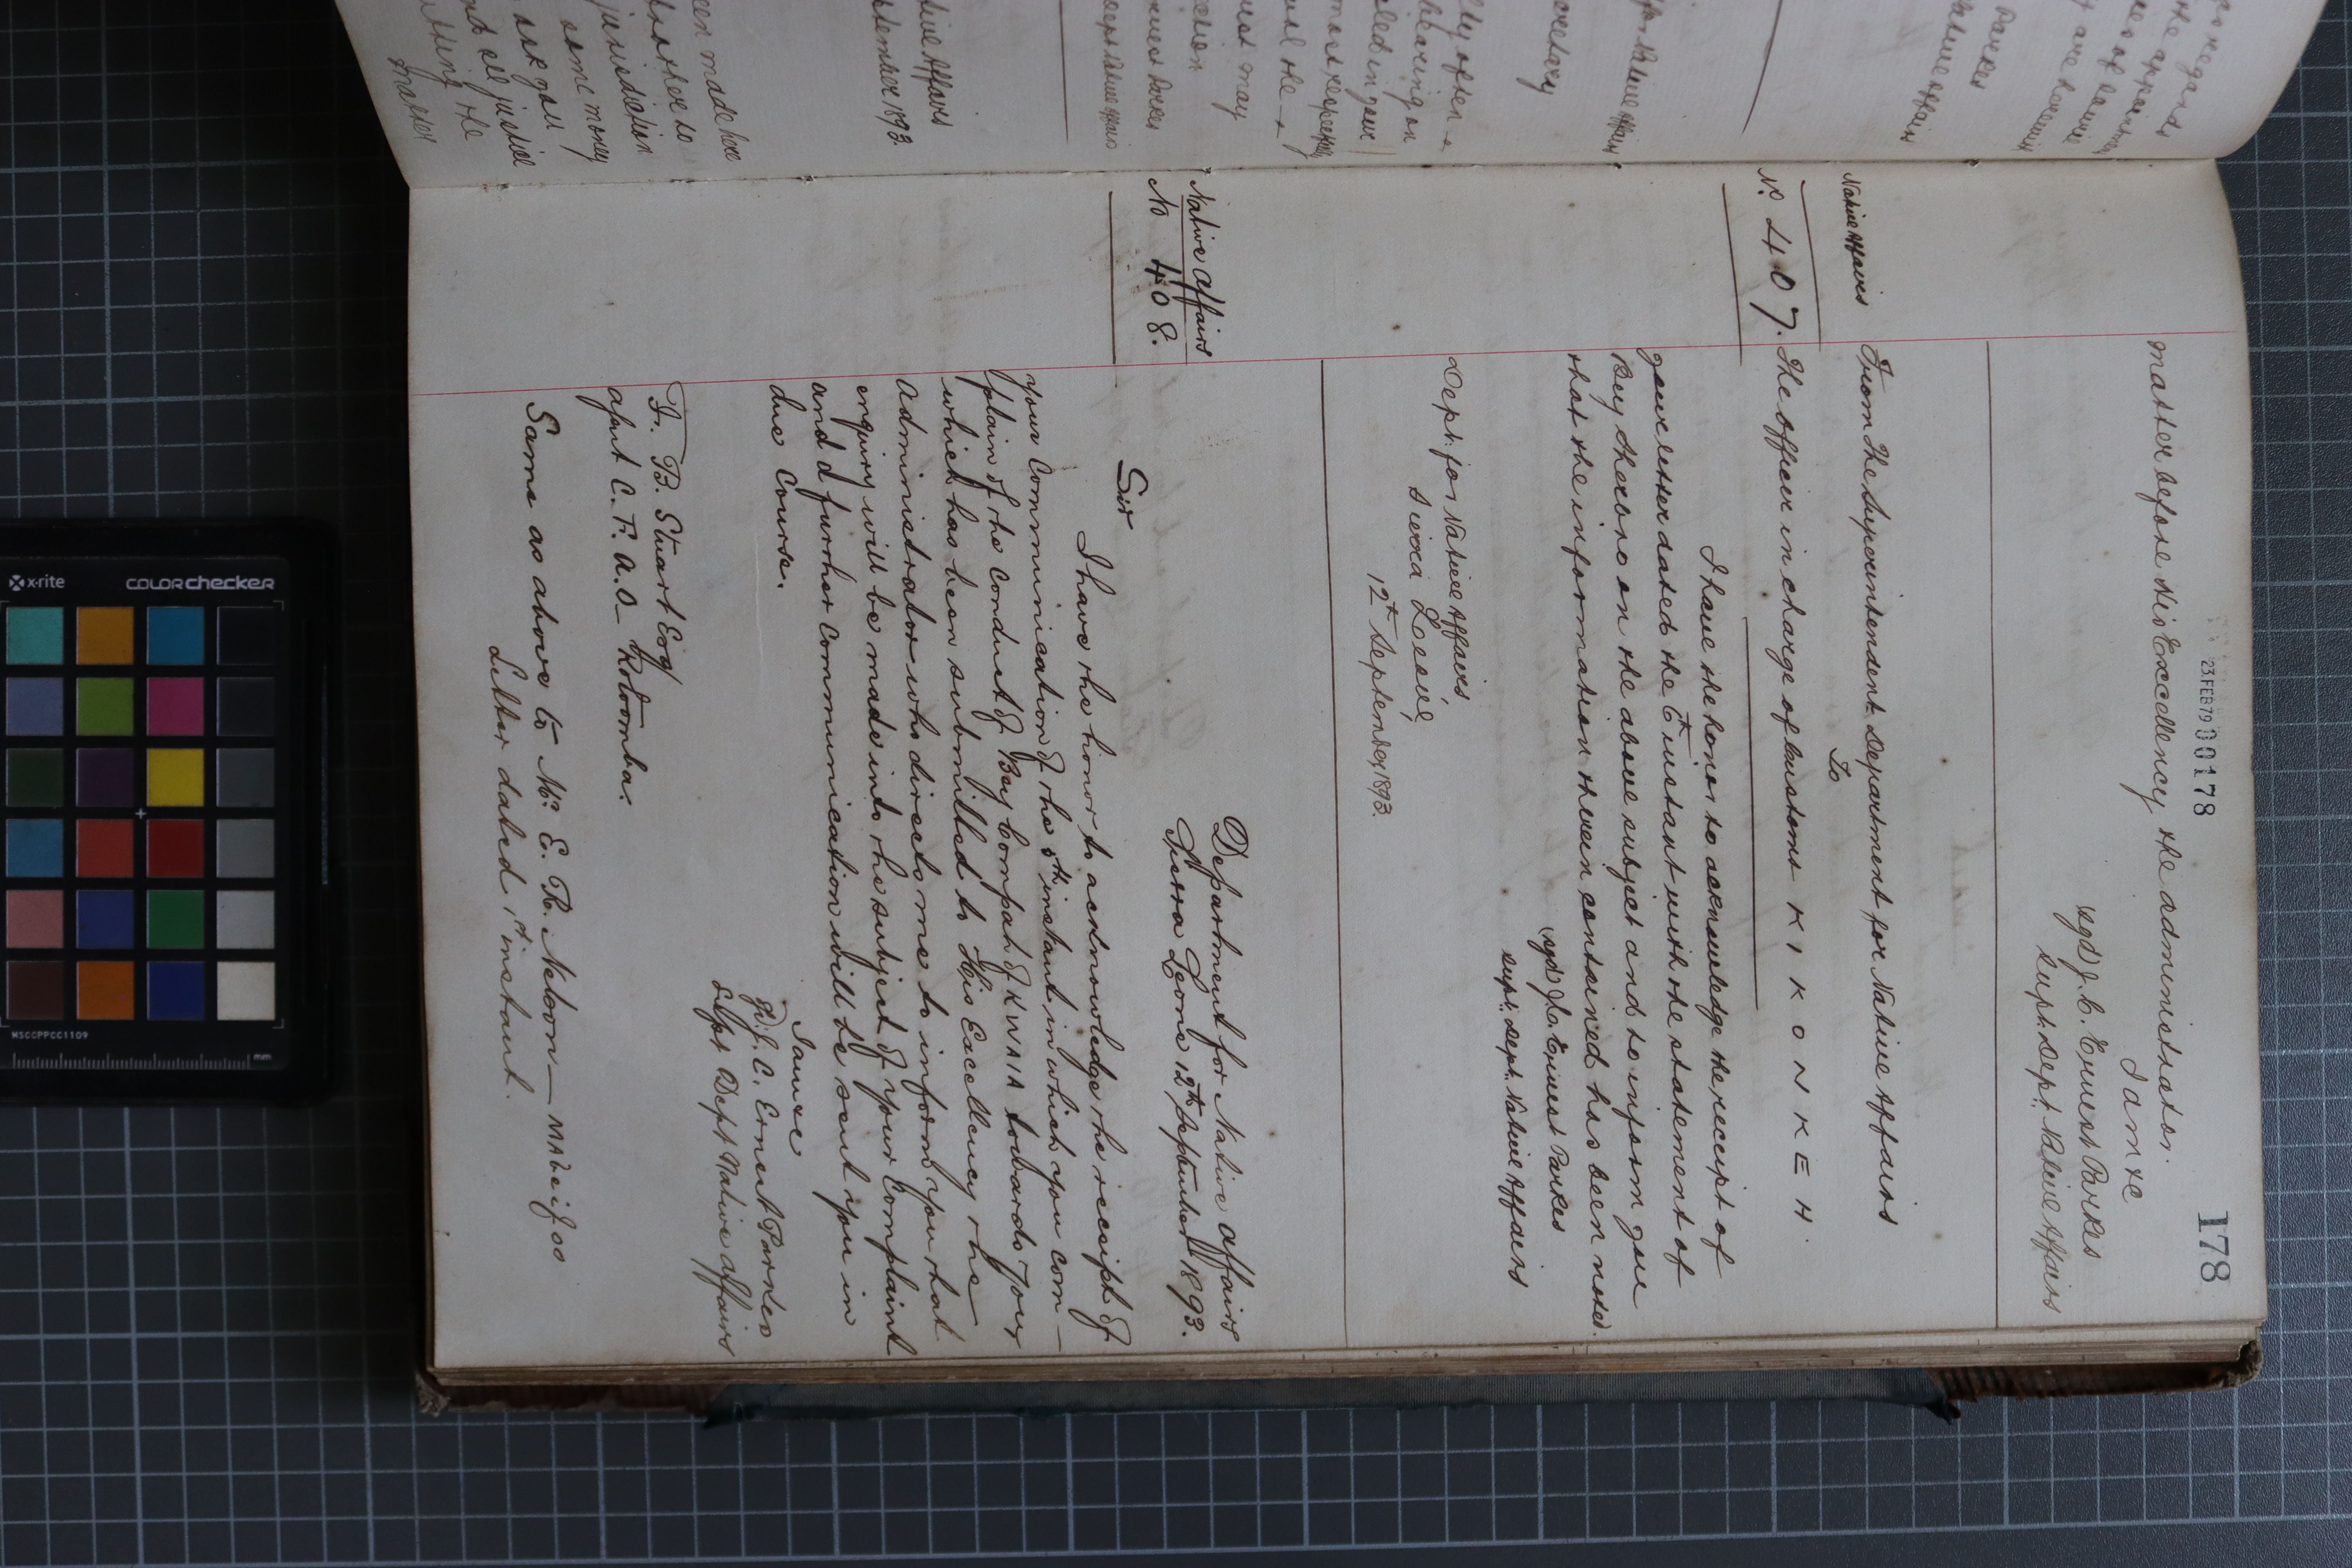 23 FEB 79 00178
178
matter before His Excellency the Administrator.
I am &c
sgd) J. C. Ernest Parkes
Supt. Dept. Native Affairs
Native Affairs
From The Superintendent Department for Native Affairs
To
No. 407. The officer in charge of Customs KIKONKEH.
I have the honor to acknowledge the receipt of
your letter dated the 6th instant with the statement of
Bey Sherbro on the above subject and to inform you
that the information therein contained has been noted.
(sgd) J. C. Ernest Parkes
Supt. Dept. Native Affairs
Dept. for Native Affairs
Sierra Leone,
12th September 1893.
Native Affairs
No 408.
Department for Native Affairs
Sierra Leone 12th September 1893.
Sir
I have the honor to acknowledge the receipt of
your Communication of the 5th instant in which you com-
plain of the conduct of Bey Compah of KWAIA towards you
which has been submitted to His Excellency the
Administrator who directs me to inform you that
enquiry will be made into the subject of your Complaint
and d further communication will be sent you in
due course.
I am &c
sgd. J. C. Ernest Parkes
Supt Dept Native Affairs
F. B. Stuart Esq
agent C. F. A. O. Rotoomba.
Same as above to Mr. E. R. Nelson —
Letter dated 1st instant.
een made here
some money
ask you
matter
tive Affairs
tember 1893.
ecretary
Parkes
as regards